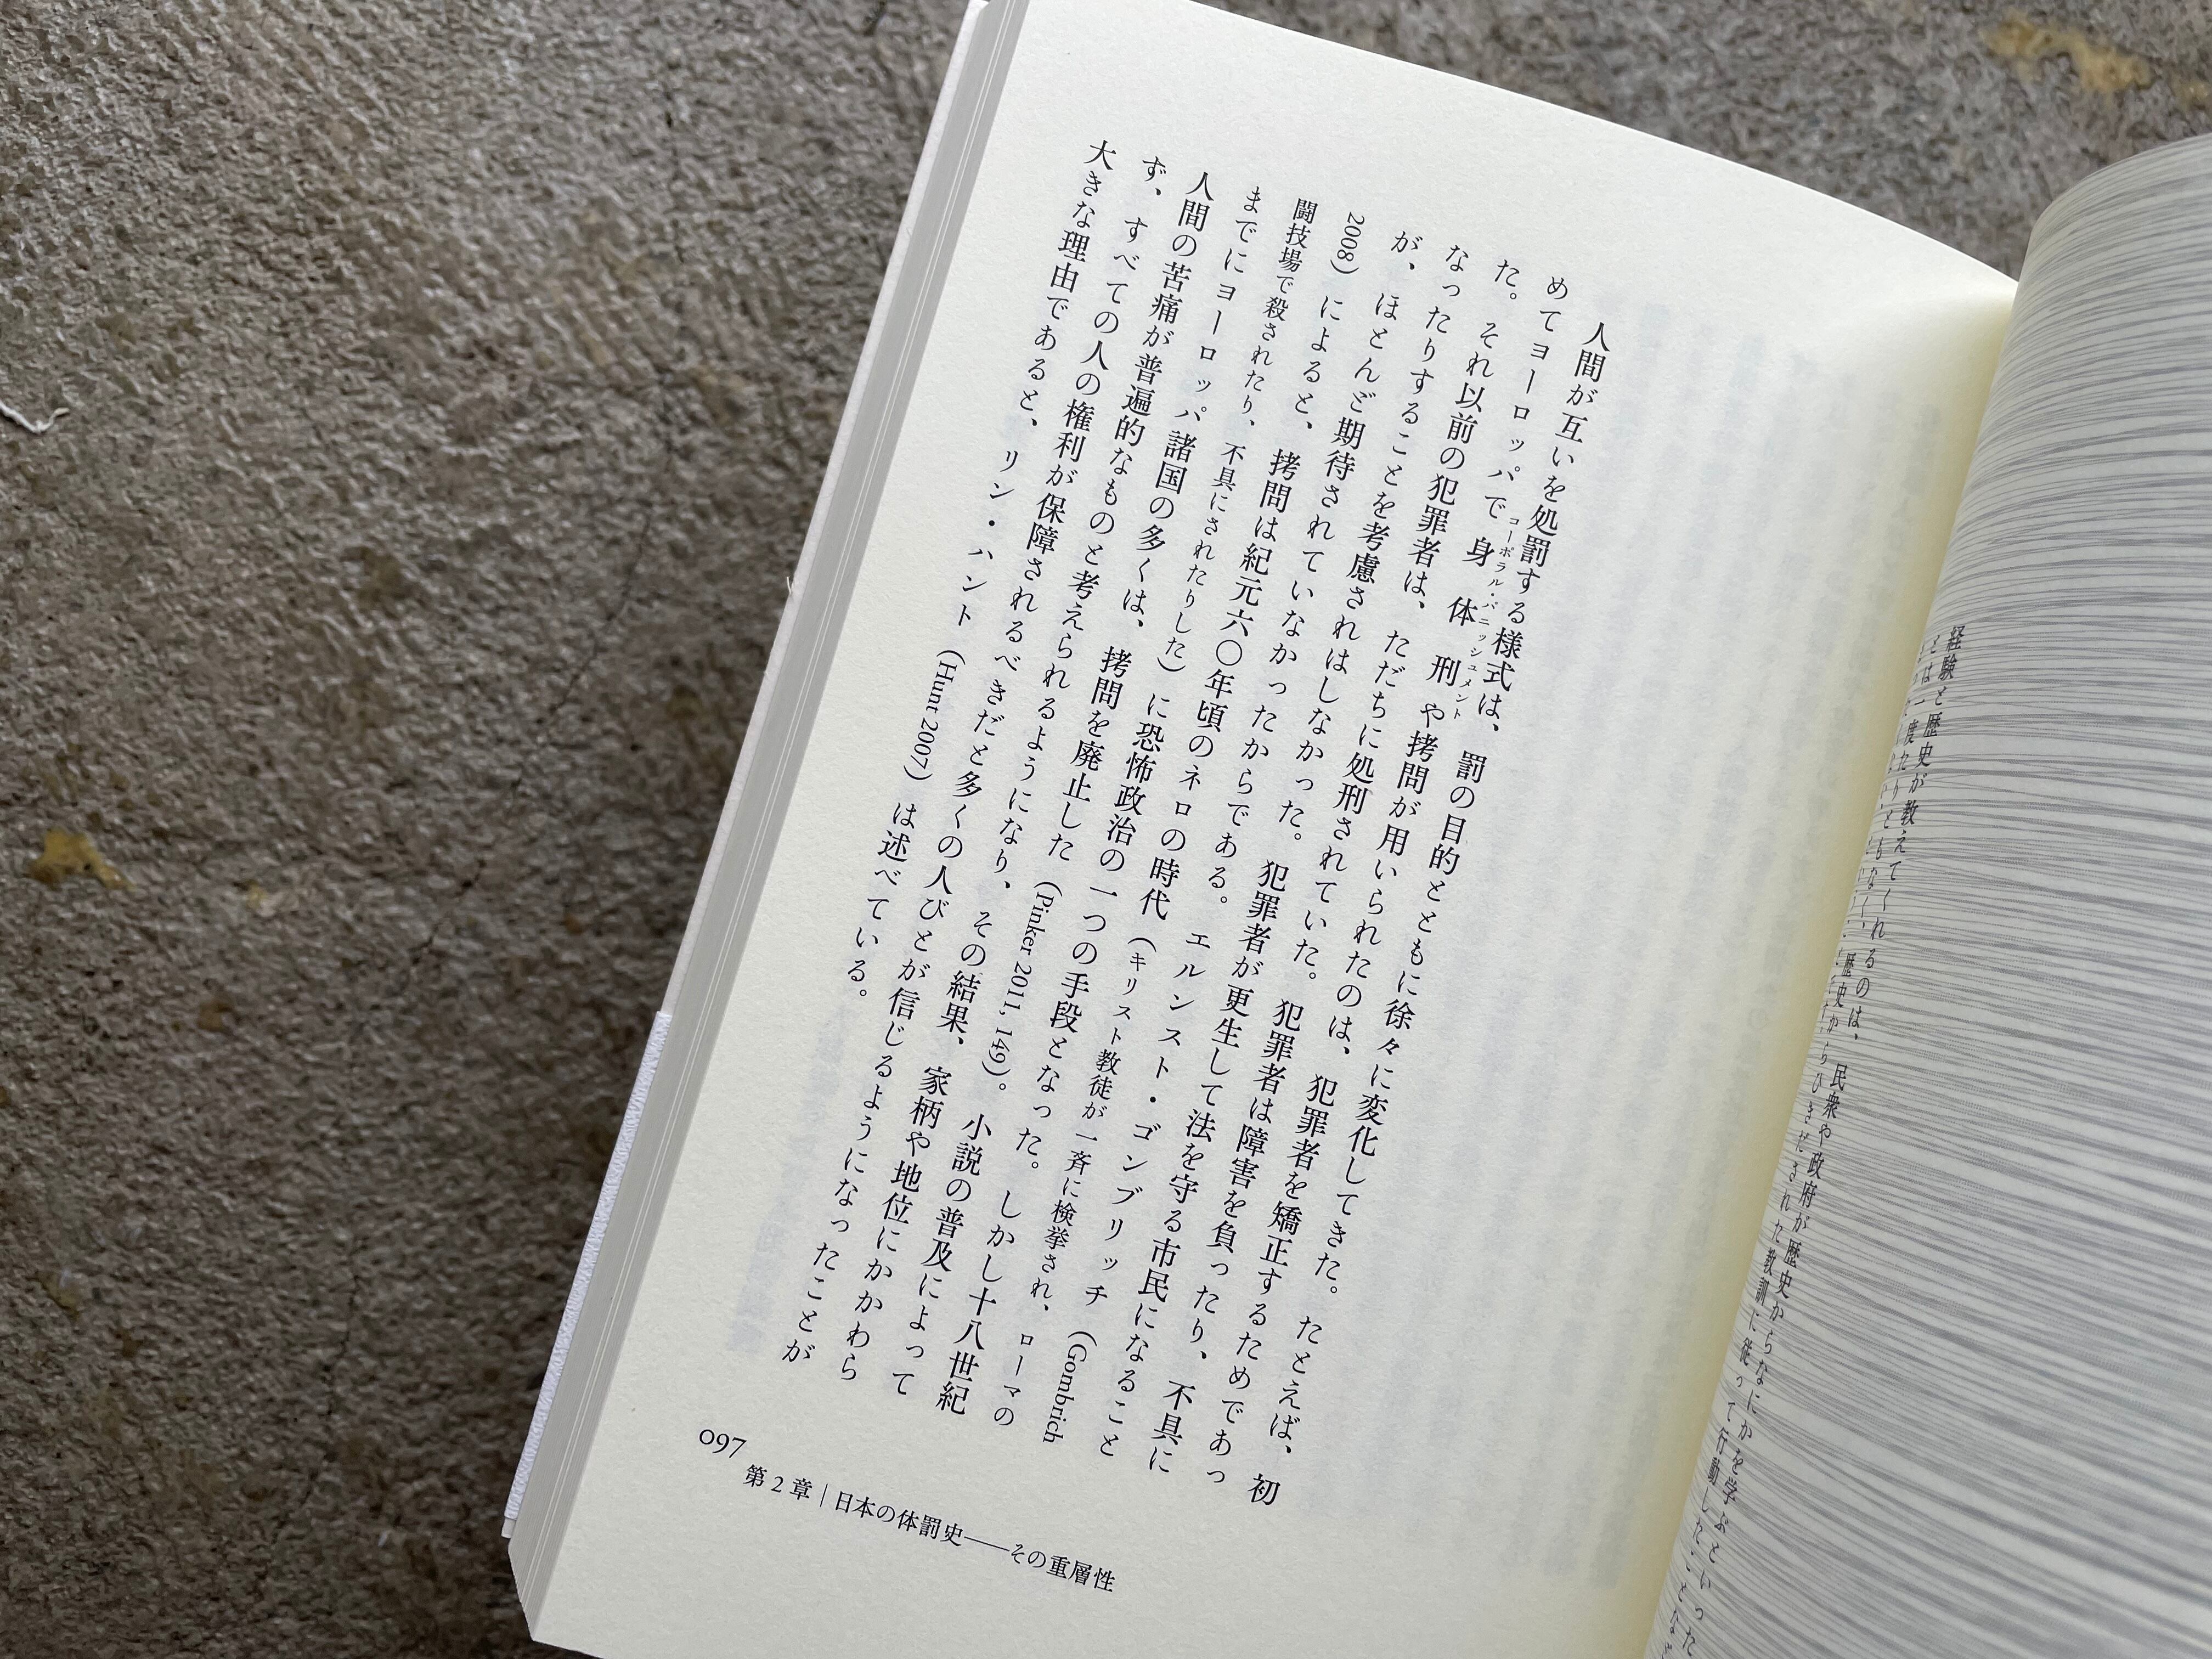 経験と歴史が教えてくれるのは、民衆や政府が歴史からなにかを学ぶといった
とは一度たりともなく、歴史からひきだされた教訓に従って行動したことな
人間が互いを処罰する様式は、罰の目的とともに徐々に変化してきた。たとえば、初
めてヨーロッパで身体刑や拷問が用いられたのは、犯罪者を矯正するためであっ
コーポラル・パニッシュメント
た。それ以前の犯罪者は、ただちに処刑されていた。犯罪者は障害を負ったり、不具に
なったりすることを考慮されはしなかった。犯罪者が更生して法を守る市民になること
が、ほとんど期待されていなかったからである。エルンスト・ゴンブリッチ（Gombrich
2008）によると、拷問は紀元六〇年頃のネロの時代（キリスト教徒が一斉に検挙され、ローマの
闘技場で殺されたり、不具にされたりした）に恐怖政治の一つの手段となった。しかし十八世紀
までにヨーロッパ諸国の多くは、拷問を廃止した（Pinker 2011, 149）。小説の普及によって
人間の苦痛が普遍的なものと考えられるようになり、その結果、家柄や地位にかかわら
ず、すべての人の権利が保障されるべきだと多くの人びとが信じるようになったことが
大きな理由であると、リン・ハント（Hunt 2007）は述べている。
097 第2章｜日本の体罰史――その重層性